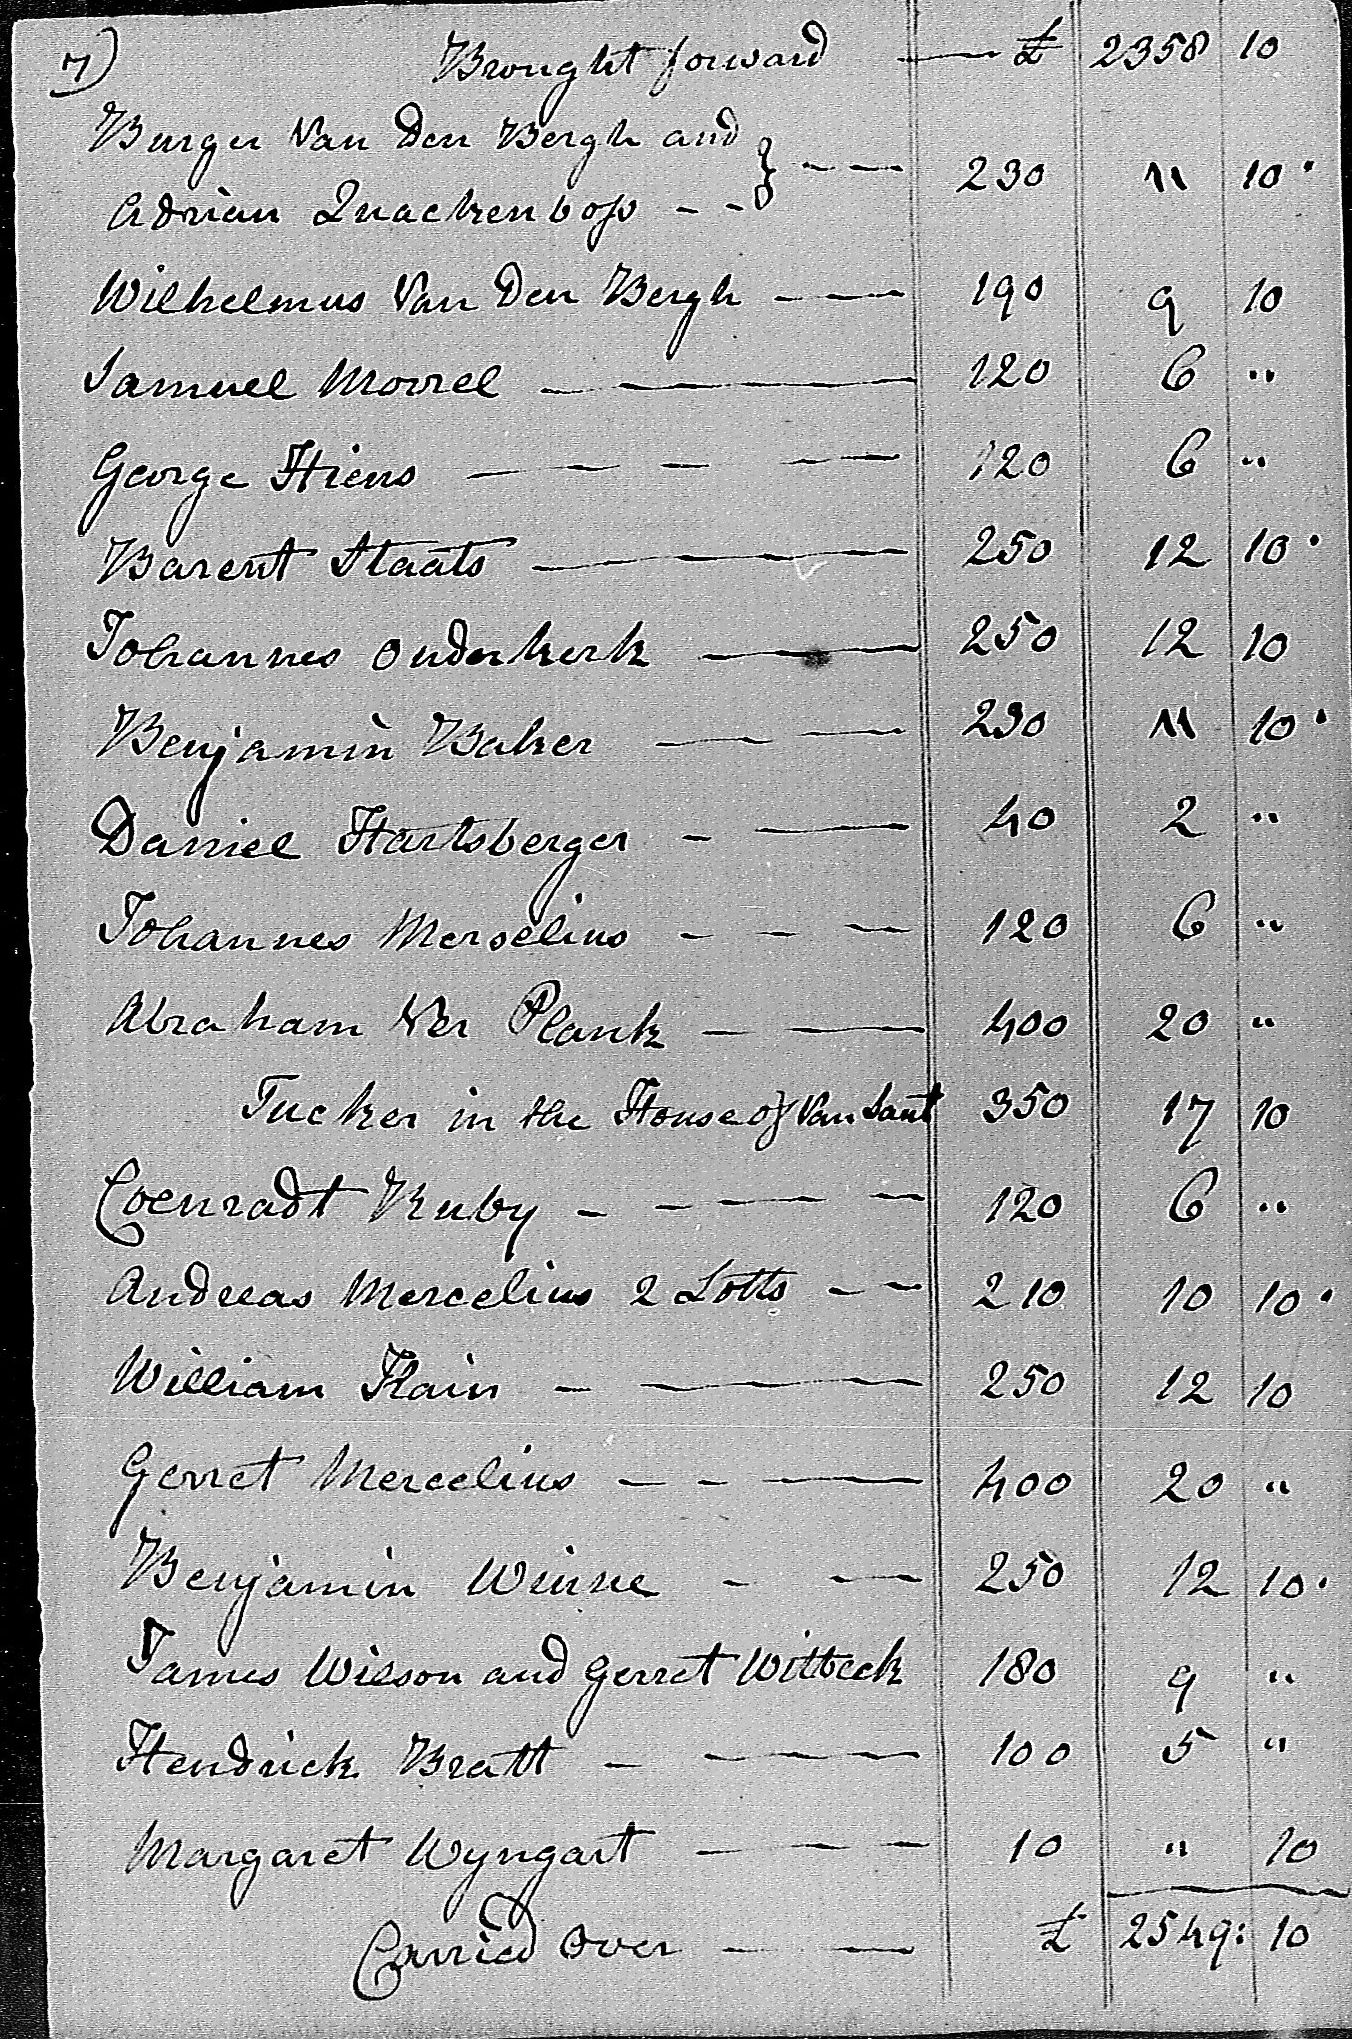 7) Brought forward — £ 2358 10
Burger Van Den Bergh and
Adrian Quackenboss - - } - — — 230 11 10
Wilhelmus Van Den Bergh - — — 190 9 10
Samuel Morrel — — — — 120 6 "
George Hiens — — — — 120 6 "
Barent Staats — — — — 250 12 10
Johannes Ouderkerk — — — 250 12 10
Benjamin Baker — — — 230 11 10
Daniel Hartsberger - — — 40 2 "
Johannes Merselius - - — — 120 6 "
Abraham Ver Plank — — — 400 20 "
Tucker in the House of Van Sant 350 17 10
Coenradt Ruby - - — — — 120 6 "
Andreas Mercelius 2 Lotts - — 210 10 10
William Hain - — — — 250 12 10
Gerret Mercelius — - — — 400 20 "
Benjamin Winne - - — 250 12 10
James Wilson and Gerret Witbeck 180 9 "
Hendrick Bratt - — — — 100 5 "
Margaret Wyngart — — — 10 " 10
Carried Over — — £ 2549: 10